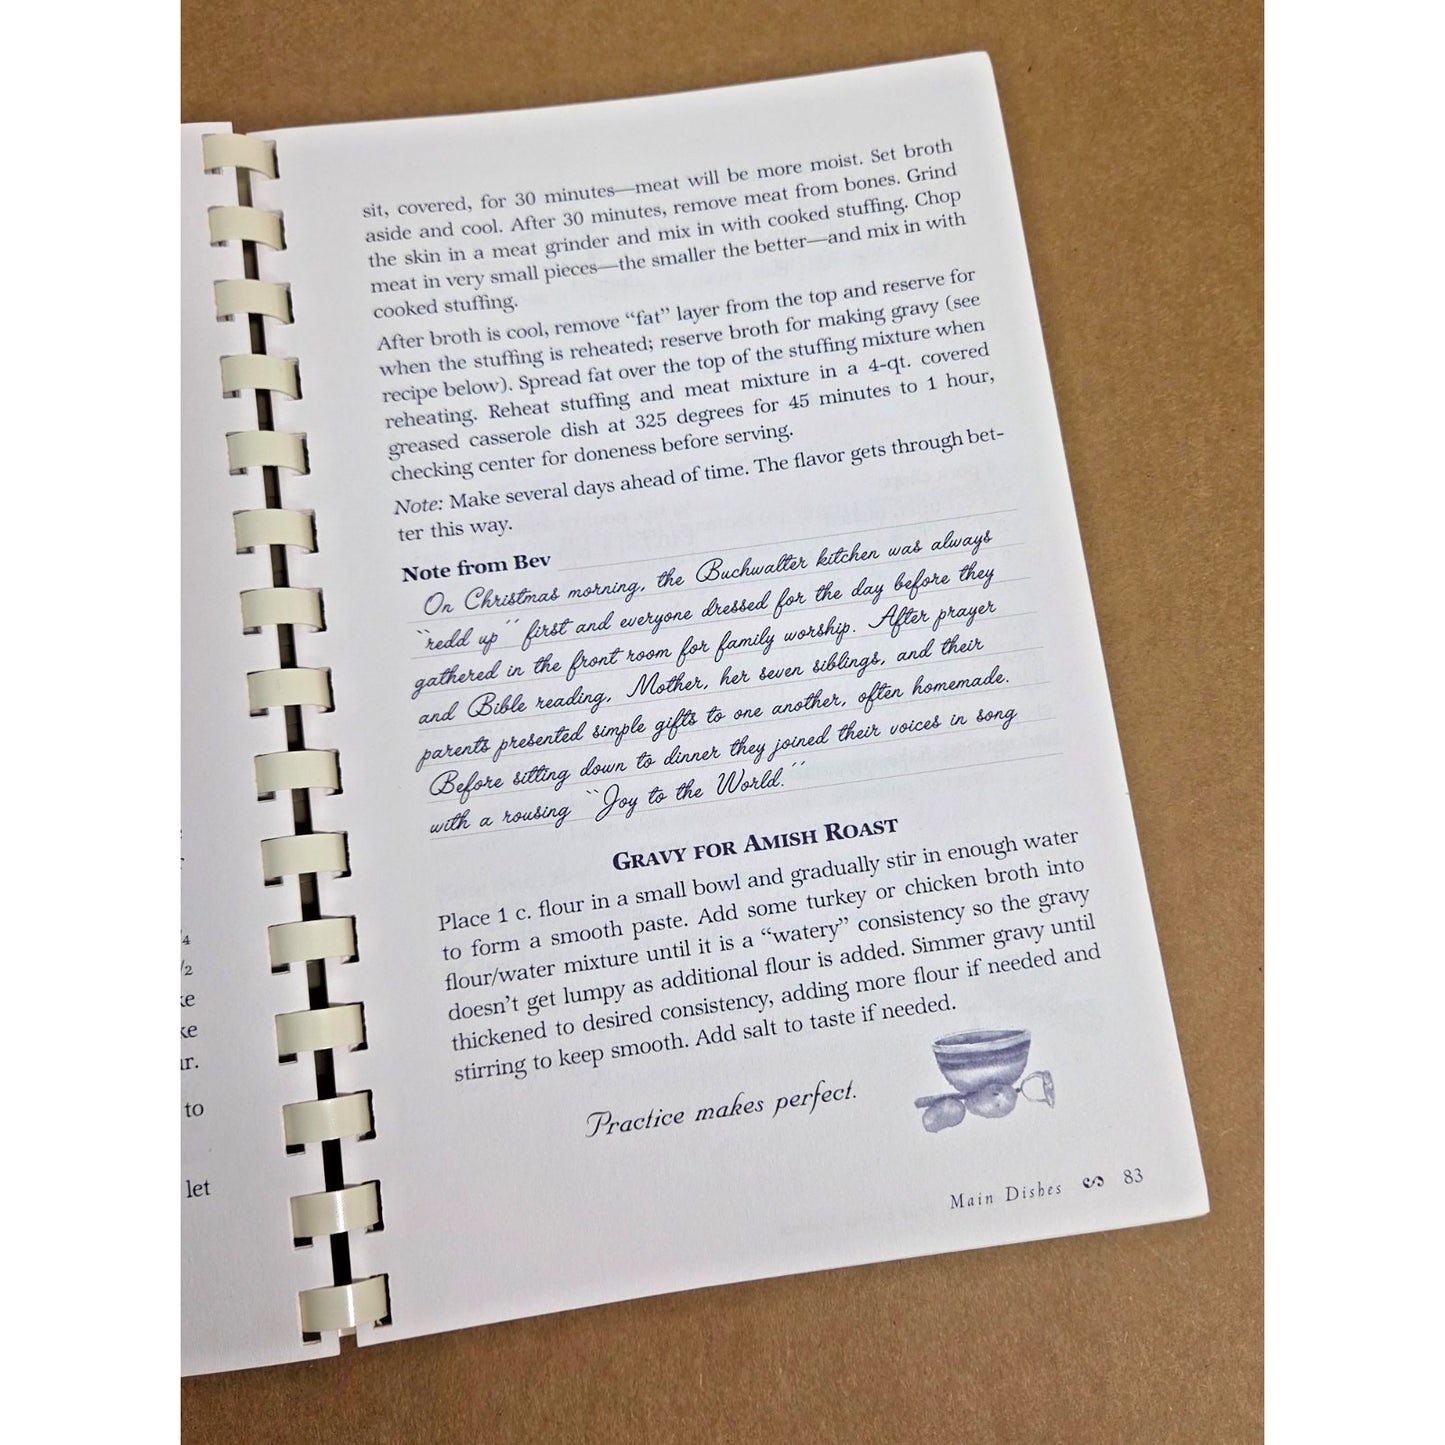 sit, covered, for 30 minutes—meat will be more moist. Set broth
aside and cool. After 30 minutes, remove meat from bones. Grind
the skin in a meat grinder and mix in with cooked stuffing. Chop
meat in very small pieces—the smaller the better—and mix in with
cooked stuffing.
After broth is cool, remove “fat” layer from the top and reserve for
when the stuffing is reheated; reserve broth for making gravy (see
recipe below). Spread fat over the top of the stuffing mixture when
reheating. Reheat stuffing and meat mixture in a 4-qt. covered
greased casserole dish at 325 degrees for 45 minutes to 1 hour,
checking center for doneness before serving.
Note: Make several days ahead of time. The flavor gets through bet-
ter this way.
Note from Bev
On Christmas morning, the Buchwalter kitchen was always
“redd up” first and everyone dressed for the day before they
gathered in the front room for family worship. After prayer
and Bible reading, Mother, her seven siblings, and their
parents presented simple gifts to one another, often homemade.
Before sitting down to dinner they joined their voices in song
with a rousing “Joy to the World.”
GRAVY FOR AMISH ROAST
Place 1 c. flour in a small bowl and gradually stir in enough water
to form a smooth paste. Add some turkey or chicken broth into
flour/water mixture until it is a “watery” consistency so the gravy
doesn’t get lumpy as additional flour is added. Simmer gravy until
thickened to desired consistency, adding more flour if needed and
stirring to keep smooth. Add salt to taste if needed.
Practice makes perfect.
Main Dishes 83
to
let